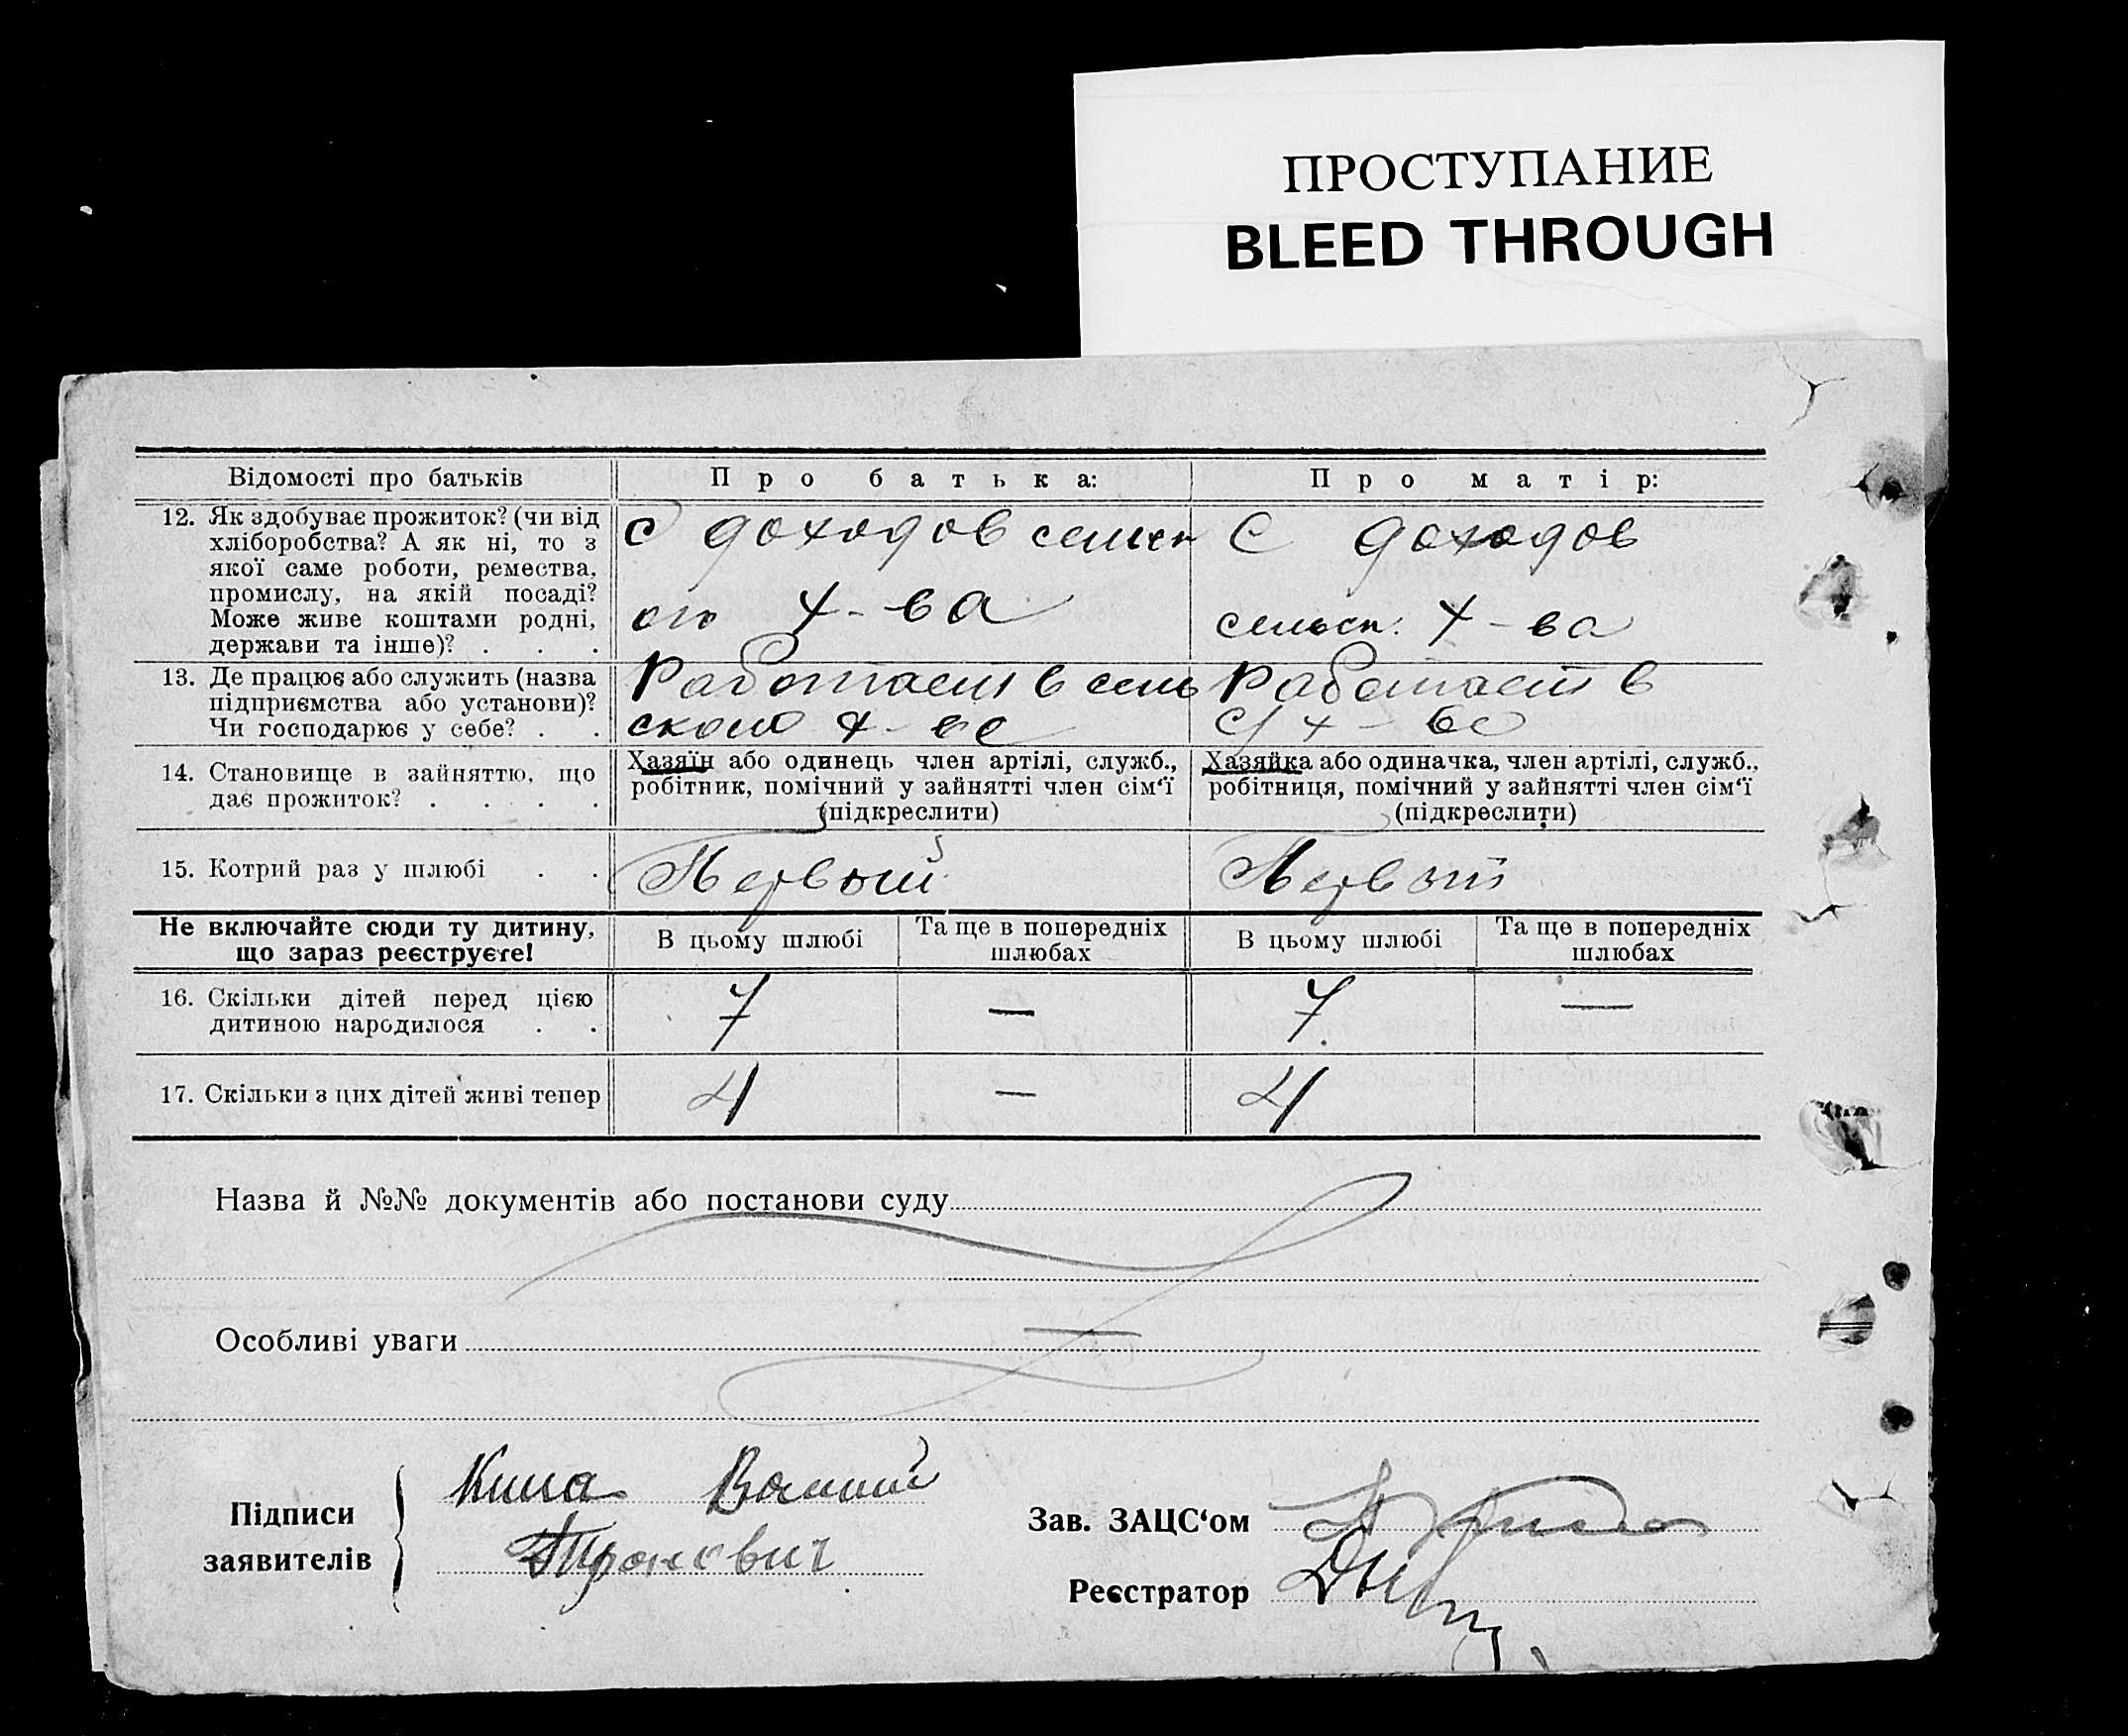 ПРОСТУПАНИЕ
BLEED THROUGH
Відомості про батьків
Про батька:
Про матір:
12. Як здобуває прожиток? (чи від
хліборобства? А як ні, то з
якої саме роботи, ремества,
промислу, на якій посаді?
Може живе коштами родні,
держави та інше)? . . .
С доходов сельск
ого х-ва
С доходов
сельск. х-ва
13. Де працює або служить (назва
підприємства або установи)?
Чи господарює у себе? . .
Работает в сель
ском х-ве
Работает в
с/х-ве
14. Становище в зайняттю, що
дає прожиток? . . . .
Хазяїн або одинець член артілі, служб.,
робітник, помічний у зайнятті член сім‘ї
(підкреслити)
Хазяйка або одиначка, член артілі, служб.,
робітниця, помічний у зайнятті член сім‘ї
(підкреслити)
15. Котрий раз у шлюбі . .
Первый
Первый
Не включайте сюди ту дитину,
що зараз реєструєте!
В цьому шлюбі
Та ще в попередніх
шлюбах
В цьому шлюбі
Та ще в попередніх
шлюбах
16. Скільки дітей перед цією
дитиною народилося . .
7
—
7
—
17. Скільки з цих дітей живі тепер
4
—
4
Назва й №№ документів або постанови суду
Особливі уваги —
Підписи
заявителів
Зав. ЗАЦС‘ом
Реєстратор